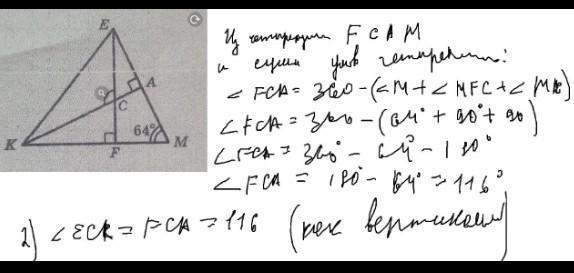 E
A
C
64°
K
F
M
Из четырехугол FCAM
и сумма углов четырехуг:
∠FCA = 360 - (∠M + ∠MFC + ∠MAC)
∠FCA = 360 - (64° + 90° + 90)
∠FCA = 360° - 64° - 180°
∠FCA = 180° - 64° = 116°
2) ∠ECK = FCA = 116 (как вертикальн)